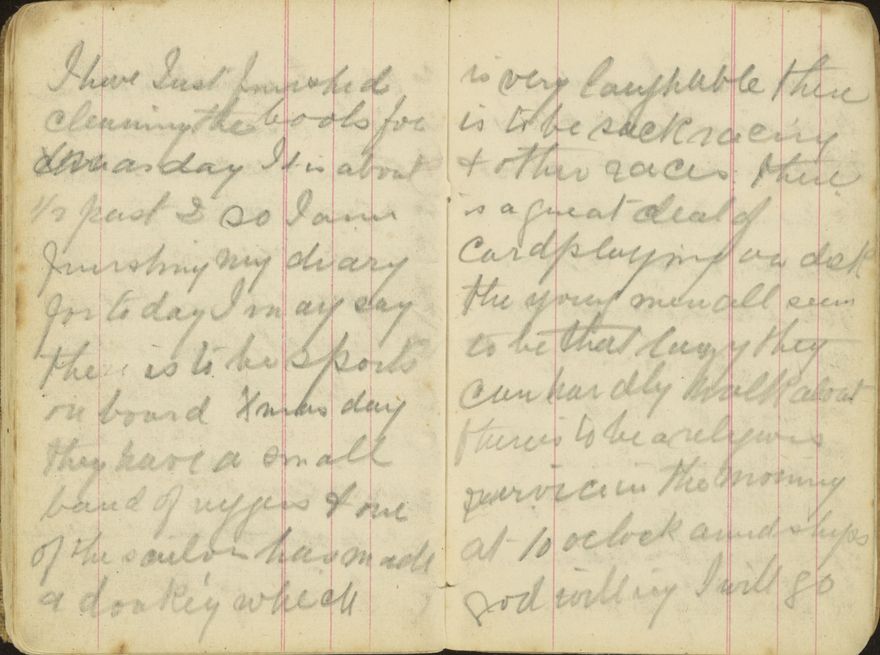 I have Just finished
cleaning the boots for
Xmas day It is about
½ past 2 so I am
finishing my diary
for to day I may say
there is to be sports
on board Xmas day
they have a small
band of niggers & one
of the sailor has made
a donkey which
is very laughable there
is to be sack racing
& other races there
is a great deal of
cardplaying on dek
the young men all seem
to be that lazy they
can hardly walk about
there is to be a religious
service in the morning
at 10 oclock amidships
god willing I will go